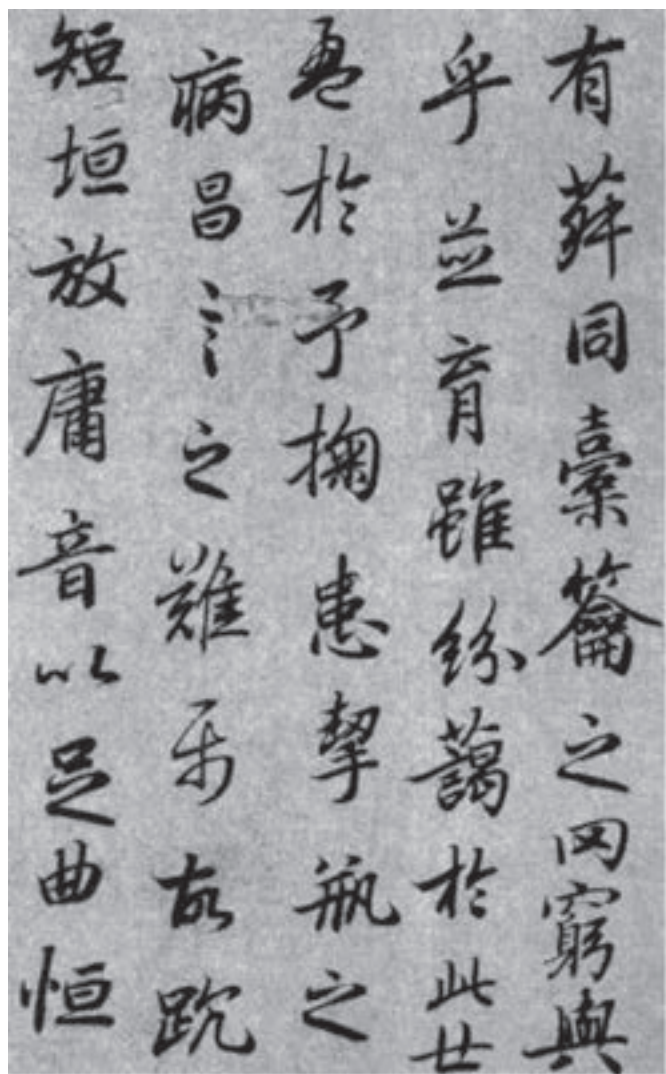 有菽同橐籥之罔窮與
乎並育雖紛藹於此世
盈於予掬患挈瓶之
病昌言之難屬故踸
短垣放庸音以足曲恒